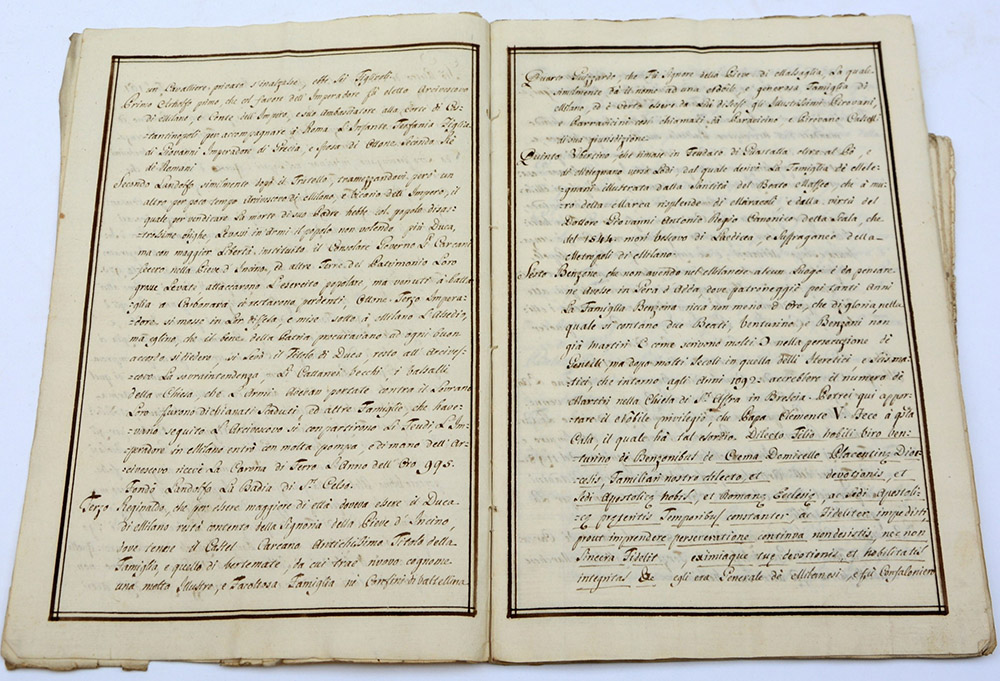 un Cavalliere, piccato s'inalzasse, ebbe sei Figlioli.
Primo Vescovo primo, che col favore dell'Imperadore fù eletto Arcivescovo
di Milano, e Conte dell'Impero, e suo Ambasciatore alla Corte di Co-
stantinopoli per accompagnare à Roma L'Infante Teofania Figlia
di Giovanni Imperadore di Grecia, e sposa di Ottone Secondo Rè
de Romani
Secondo Landolfo similmente dopo il Fratello, tramezzandovi però un
altro per poco tempo Arcivescovo di Milano, e Vicario dell'Impero, il
quale per vendicare La morte di suo Padre hebbe col popolo disas-
trosissime brighe, Levossi in Armi il popolo non volendo più Duca,
ma con maggior Libertà instituito il Consolare Governo Li Carcani
dietro nella Pieve d'Incino, ed altre Terre del Patrimonio Loro
grave Levati attaccarono L'esercito popolare, ma venuti à batta-
aglia a Carbonara vi restarono perdenti. Ottone Terzo Impera-
dore, si mosse in Lor difesa, e mise sotto à Milano L'Assedio,
ma eglino, che il bene della Patria procuravano ad ogni buon
accordo si diedero. Si levò il Titolo di Duca, restò all'Arcives-
covo La sopraintendenza, Li Cattanei Vecchi, i Vassalli
della Chiesa, che L'Armi avevan portate contro il Sovrano
Loro furono dichiarati Caduti, ed altre Famiglie, che have-
vano seguito L'Arcivescovo si compartirono Li Feudi, L'Im-
peradore in Milano entrò con molta pompa, e di mano dell'Ar-
civescovo ricevè La Corona di Ferro L'Anno dell'Oro 995.
Fondò Landolfo La Badia di S. Celso.
Terzo Reginaldo, che per essere maggiore di età doveva essere il Duca
di Milano restò contento della Signoria della Pieve d'Incino,
dove tenere il Castel Carcano Antichissimo Titolo della
Famiglia, e quello di Vertemate, da cui trae nuovo cognome
una molto Illustre, e facoltosa Famiglia ne Confini di Valtellina
Quarto Guizzardo, che fù Signore della Pieve di Marsaglia, La quale
similmente dà il nome ad una nobile, e generosa Famiglia di
Milano, ed è certo essere da Lui discesi gli Illustrissimi Pirovani,
Parravicini così chiamati da Paravicino e Pirovano Castelli
di sua giurisdizione.
Quinto Albertino, che rimase in Feudato di Guastalla, oltre al Pò, e
di Melegnano verso Lodi, dal quale derivò La Famiglia de Mele-
gnani illustrata dalla Santità del Beato Maffeo, che à mu-
ro della Marca risplende di Miracoli e dalla virtù del
Dottore Giovanni Antonio Regio Canonico della Scala, che
del 1544 morì Vescovo di Laodicea, e Suffraganeo della
Metropoli di Milano.
Sesto Benzone, che non avendo nel Milanese alcun Luogo, è da pensare
che avesse in Gera d'Adda, dove patroneggiò poi tanti anni
La Famiglia Benzona ricca non meno d'Oro, che di gloria, nella
quale si contano due Beati, Venturino, e Benzoni non
già martiri come scrivono molti nella persecuzione de
Gentili, ma dopo molti secoli in quella degl'Heretici e Scisma-
tici, che intorno agli Anni 1092: accrebbe il numero di
Martiri nella Chiesa di S. Affra in Brescia. Vorrei quì appor-
tare il nobile privilegio, che Papa Clemente V fece à q.sta
Casa, il quale hà tal esordio. Dilecto Filio nobili Viro Ven-
turino de Benzonibus de Crema Domicello Placentinę Dioe-
cesis, Familiari nostro dilecto, et devotionis, et
Sedi Apostolicę nobis, et Romanę Ecclesię, ac Sedi Apostoli-
cę presentis Temporibus constanter, ac Fideliter impendisti,
prout impendere perseveratione continua non desistis, nec non
Sincera Fidelis, eximiaque tuę devotionis, et habilitatis
integritas &c egli era Generale de Milanesi, e fù Confaloniero